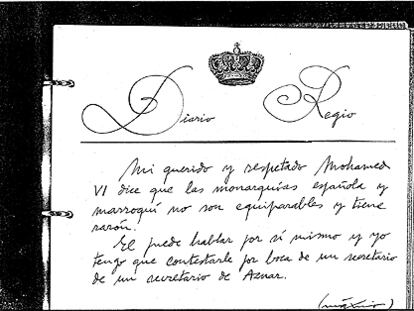 Diario Regio
Mi querido y respetado Mohamed
VI dice que las monarquías española y
marroquí no son equiparables y tiene
razón.
El puede hablar por sí mismo y yo
tengo que contestarle por boca de un secretario
de un secretario de Aznar.
(máximo)